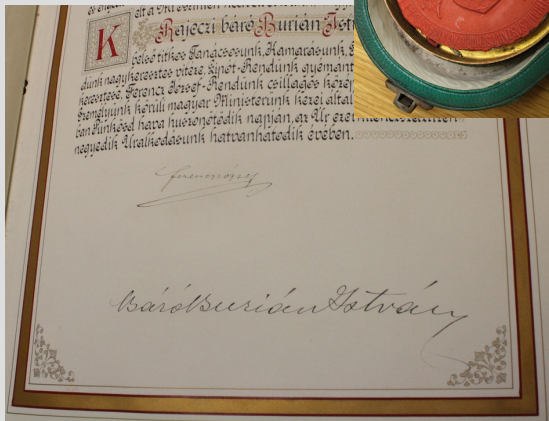 Rajeczi báró Burián Ist
belső titkos Tanácsosunk, Kamarásunk, S
dünk nagykeresztes vitéze, Lipót-Rendünk gyémánt
keresztese, Ferencz József-Rendünk csillagos közép
Személyünk körüli magyar Ministerünk kezei által
ban Pünkösd hava huszonötödik napján, az Úr
negyedik Uralkodásunk hatvanhatodik évében.
Ferencz József
Báró Burián István